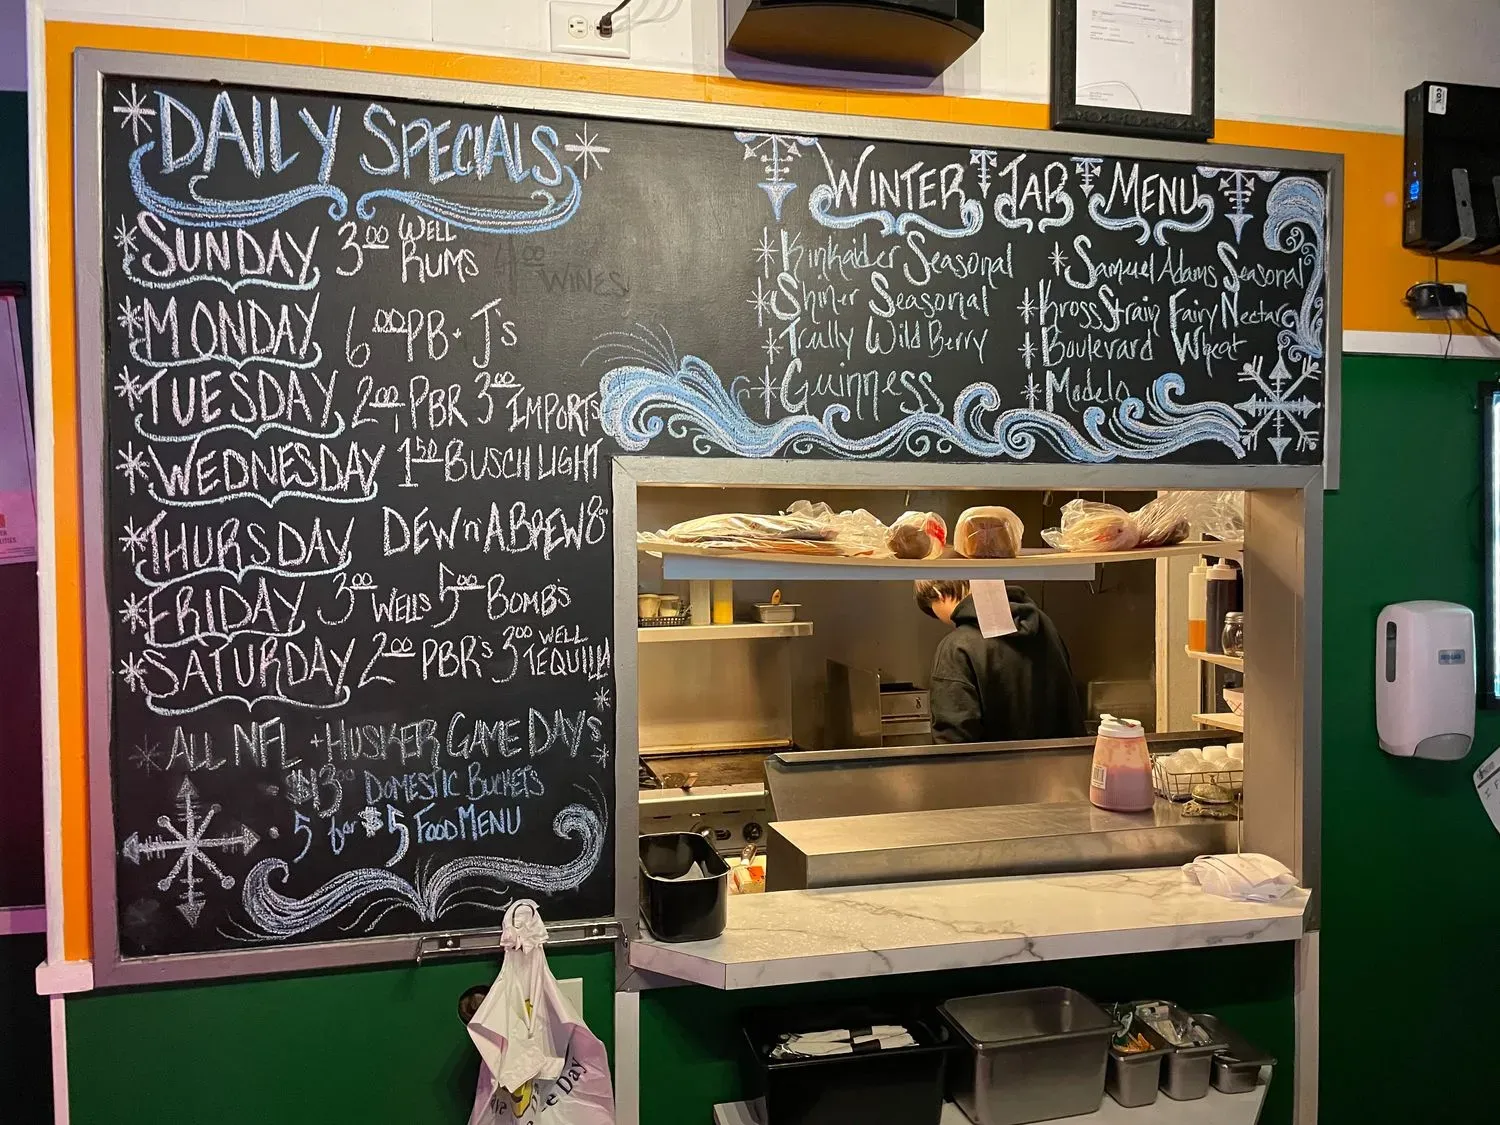 DAILY SPECIALS
SUNDAY 3.00 WELL RUMS
4.00 WINES
MONDAY 6.00 PB + J's
TUESDAY 2.00 PBR 3.00 IMPORTS
WEDNESDAY 1.50 BUSCH LIGHT
THURSDAY DEW n' A BREW 8.00
FRIDAY 3.00 WELLS 5.00 BOMBS
SATURDAY 2.00 PBR's 3.00 WELL TEQUILA
ALL NFL + HUSKER GAME DAYS
$13.00 DOMESTIC BUCKETS
5 for $5 FOOD MENU
WINTER TAP MENU
Kinkaider Seasonal
Shiner Seasonal
Trully Wild Berry
Guinness
Samuel Adams Seasonal
Kross Strain Fairy Nectar
Boulevard Wheat
Modelo
COX
e Day